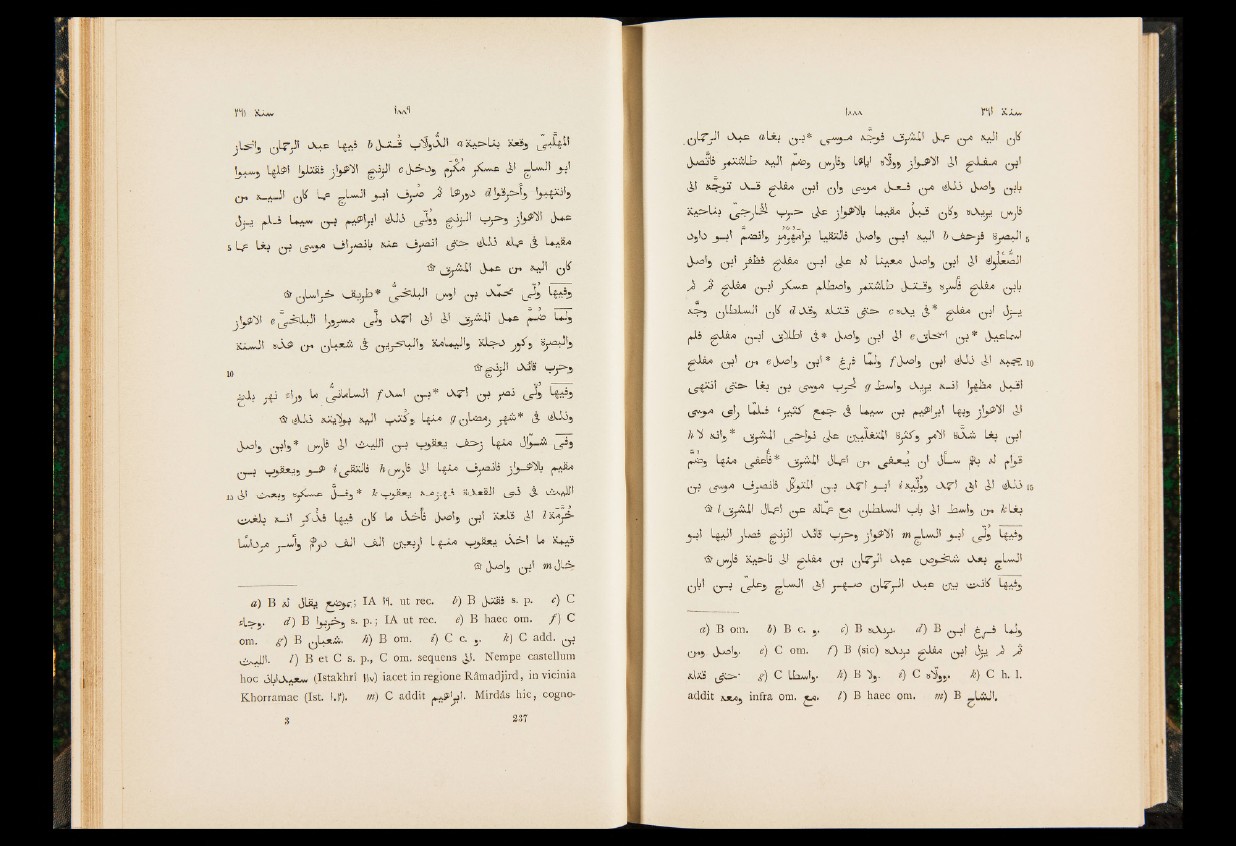 سنة ٢٦١ ١٨٨٨
كان اليه من عمل المشرق فوجّه موسى *بن بغا a عبد الرحمان
ابن مفلح الى الاهواز وولّاه اياها وفارس وضمّ اليه طاشتمر فاتّصل
بابن واصل ذلك من فعل موسى وان ابن مفلح قد توجّه الى
فارس يريده وكان قبلُ مقيما بالاهواز على حرب الخارجىّ بناحية
5 البصرة فزحف b اليه ابن واصل فالتقيا برامَهُرْمُز وانضمّ ابو داود
الصُّعْلوك الى ابن واصل معينا له على ابن مفلح فظفر ابن واصل
بابن مفلح فأسره وقتل طاشتمر واصطلم عسكر ابن مفلح ثمّ لم
يزل ابن مفلح *فى يده c حتى قتله وقد d كان السلطان وجّه
اسماعيل *بن اسحاق e الى ابن واصل *فى اطلاق ابن مفلح فلم
10 يجبه الى ذلك ابن واصل f ولمّا فرغ *ابن واصل e من ابن مفلح
اقبل مظهرا انه يريد واسط g لحرب موسى بن بغا حتى انتهى
الى الاهواز وبها ابراهيم بن سيما فى جمع كثير، فلمّا رأى موسى
ابن بغا شدّة الامر وكثرة المتغلّبين على نواحى المشرق *وانه لا h
قوام له بهم سأل ان يُعفى من اعمال المشرق *فأعفى منها وضمّ
15 ذلك الى ابى احمد وولّيه i ابو احمد بن المتوكّل فانصرف موسى بن
بغا k من واسط الى باب السلطان مع عمّاله عن اعمال المشرق l ۞
وفيها وُلّى ابو الساج m الاهواز وحرب قائد الزنج فصار اليها ابو
الساج بعد شخوص عبد الرحمان بن مفلح الى ناحية فارس ۞
وفيها كانت بين عبد الرحمان صهر ابى الساج وعلىّ بن ابان
a) B om. b) B c. و. c) B بيده. d) B ولما فرغ ابن
واصل ومن. e) C om. f) B (sic) ثم لم يزل ابن مفلح بيده
حتى قتله. g) C واسطا. h) B ولا. i) C وولاه. k) C h. l.
addit ومعه infra om. مع. l) B haec om. m) B الشاج.
سنة ٢٦١ ١٨٨٩
المهلّبىّ وقعة بناحية a الدُّولاب قُتل b فيها عبد الرحمان وانحاز
ابو الساج الى عسكر مُكْرَم ودخل c الزنج الاهواز فقتلوا اهلها وسبوا
وانتهبوا وأحرقوا d دورها ثم صُرف ابو الساج عما كان اليه من
عمل الاهواز وحرب الزنج ووُلّى ذلك ابراهيم بن سيما فلم يزل
5 مقيما فى عمله ذلك حتى انصرف عنه بانصراف موسى بن بغا عما
كان اليه من عمل المشرق ۞
وفيها وُلّى محمّد بن اوس البلخىّ *طريف خراسان ۞
ولمّا ضمّ عمل المشرق الى ابى احمد ولّى مسرورا البلخىّ e الاهواز
والبصرة وكور دجلة واليمامة والبحرين فى شعبان من هذه السنة
10 وحرب قائد الزنج ۞
وفيها وُلّى نصر بن احمد *بن اسد f السامانىّ ما وراء نهر بلخ
وذلك فى *شهر رمضان g منها وكُتب اليه بولايته ذلك ۞
وفى شوّال منها زحف يعقوب بن الليث الى فارس *وابن واصل
مقيم بالاهواز فانصرف منها الى فارس h فالتقى i هو ويعقوب بن
15 الليث فى ذى القعدة فهزمه يعقوب k *وفلّ عسكره وبعث الى
خُرَّمة l الى قلعة ابن واصل فأخذ ما كان فيها فذُكر انه بلغت
قيمة ما اخذ يعقوب منها اربعين الف الف درهم وأسر مرداسا
خال m ابن واصل ۞
a) B بموضع يقال له; IA ١٩٠ ut rec. b) B فقتل s. p. c) C
وجاء. d) B وخربوا s. p.; IA ut rec. e) B haec om. f) C
om. g) B شعبان. h) B om. i) C c. و. k) C add. بن
الليث. l) B et C s. p., C om. sequens الى. Nempe castellum
hoc سعيداباذ (Istakhrí ١١٧) iacet in regione Râmadjird, in vicinia
Khorramae (Ist. ١٠٢). m) C addit ابراهيم. Mirdâs hic, cogno-
3 237